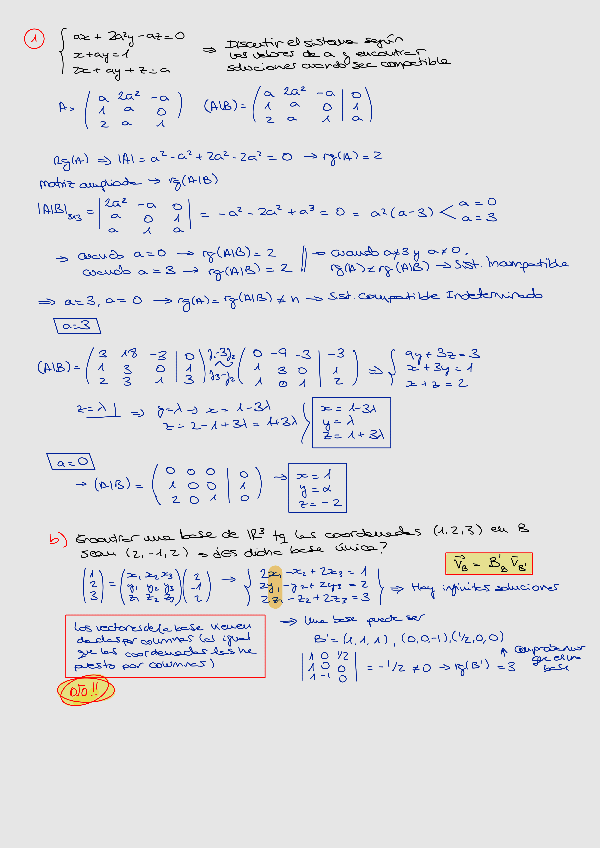 1 { ax + 2a²y - az = 0
x + ay = 1
2x + ay + z = a
⇒ Discutir el sistema según
los valores de a y encontrar
soluciones cuando sea compatible
A = ( a 2a² -a
1 a 0
2 a 1 )
(A|B) = ( a 2a² -a | 0
1 a 0 | 1
2 a 1 | a )
Rg(A) ⇒ |A| = a² - a² + 2a² - 2a² = 0 → rg(A) = 2
Matriz ampliada → rg(A|B)
|A|B|3x3 = | 2a² -a 0
a 0 1
a 1 a | = -a² - 2a² + a³ = 0 = a²(a-3) < a = 0
a = 3
⇒ cuando a = 0 → rg(A|B) = 2
cuando a = 3 → rg(A|B) = 2
→ cuando a≠3 y a≠0,
rg(A) ≠ rg(A|B) → Sist. Incompatible
⇒ a = 3, a = 0 → rg(A) = rg(A|B) ≠ n → Sist. Compatible Indeterminado
a=3
(A|B) = ( 3 18 -3 | 0
1 3 0 | 1
2 3 1 | 3 )
f1-3f2
~
f3-f2
( 0 -9 -3 | -3
1 3 0 | 1
1 0 1 | 2 ) ⇒ { 9y + 3z = 3
x + 3y = 1
x + z = 2
z = λ ⇒ y = λ → x = 1 - 3λ
z = 2 - 1 + 3λ = 1 + 3λ
x = 1 - 3λ
y = λ
z = 1 + 3λ
a = 0
→ (A|B) = ( 0 0 0 | 0
1 0 0 | 1
2 0 1 | 0 ) → x = 1
y = α
z = -2
b) Encontrar una base de ℝ³ tq las coordenadas (1,2,3) en B
sean (2,-1,2) ¿es dicha base única?
V⃗B = B'B V⃗B'
( 1
2
3 ) = ( x1 x2 x3
y1 y2 y3
z1 z2 z3 ) ( 2
-1
2 ) → { 2x1 - x2 + 2x3 = 1
2y1 - y2 + 2y3 = 2
2z1 - z2 + 2z3 = 3
⇒ Hay infinitas soluciones
Los vectores de la base vienen
dados por columnas (al igual
que las coordenadas las he
puesto por columnas)
OJO!!
→ Una base puede ser
B' = (1,1,1), (0,0,-1), (1/2,0,0)
| 1 0 1/2
1 0 0
1 -1 0 | = -1/2 ≠ 0 → rg(B') = 3
↑ comprobamos
que es una
base